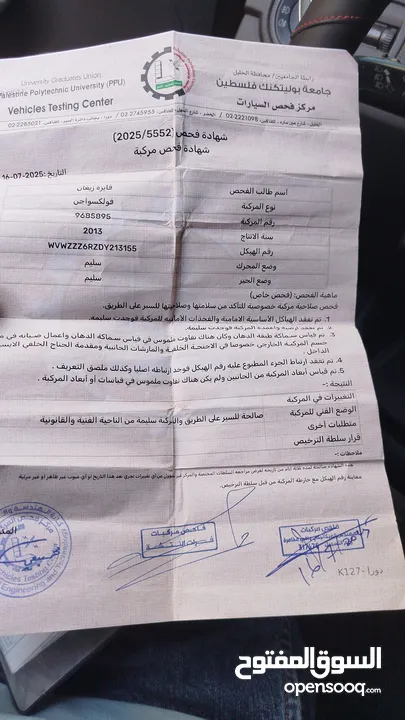 University Graduates Union
Palestine Polytechnic University (PPU)
Vehicles Testing Center
رابطة الجامعيين / محافظة الخليل
جامعة بوليتكنك فلسطين
مركز فحص السيارات
02-2221098
02-2745955
02-2285021
شهادة فحص (2025/5552)
شهادة فحص مركبة
التاريخ: 16-07-2025
اسم طالب الفحص فايزة ربعان
نوع المركبة فولكسواجن
رقم المركبة 9685895
سنة الانتاج 2013
رقم الهيكل WVWZZZ6RZDY213155
وضع المحرك سليم
وضع الجير سليم
ماهية الفحص: (فحص خاص)
فحص صلاحية مركبة خصوصية للتأكد من سلامتها وصلاحيتها للسير على الطريق.
1. تم تفقد الهياكل الاساسية الامامية والفخدات الأمامية للمركبة فوجدت سليمة.
3. تم قياس سماكة طبقة الدهان وكان هناك تفاوت ملموس في قياس سماكة الدهان واعمال صيانه في
جسم المركبة الخارجي خصوصا في الاجنحة الخلفية والمارشات الجانبية ومقدمة الجناح الخلفي
الداخل .
4. تم تفقد ارتباط الجزء المطبوع عليه رقم الهيكل فوجد ارتباطه اصليا وكذلك ملصق التعريف .
5. تم قياس أبعاد المركبة من الجانبين ولم يكن هناك تفاوت ملموس في قياسات أو أبعاد المركبة .
النتيجة :-
التغييرات في المركبة
الوضع الفني للمركبة صالحة للسير على الطريق والمركبة سليمة من الناحية الفنية والقانونية
متطلبات أخرى
قرار سلطة الترخيص
ملاحظات :-
معاينة رقم الهيكل مع خارطة المركبة من قبل سلطة الترخيص.
فاحص مركبات
فاحص مركبات
دورا-K127
السوق المفتوح
opensooq.com